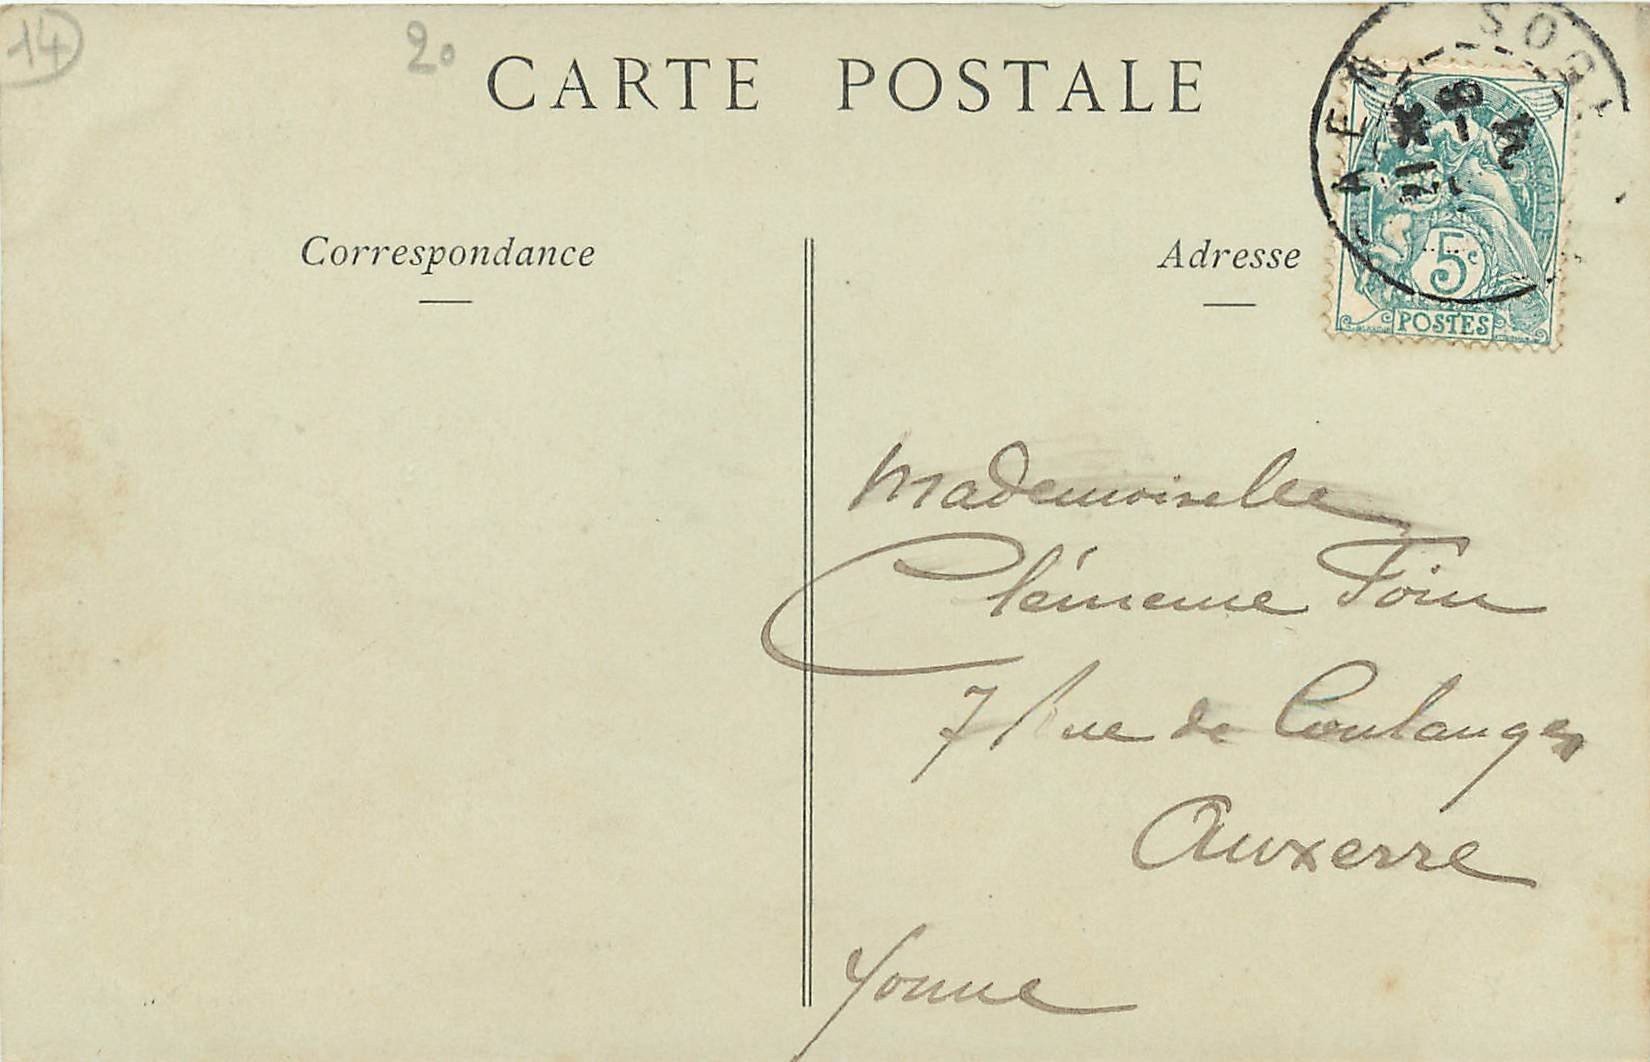 14
20
CARTE POSTALE
Correspondance
Adresse
5c
POSTES
Mademoiselle
Clémence Foin
7 Rue de Coulanges
Auxerre
Yonne